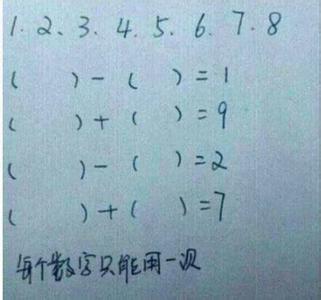 1. 2、3. 4. 5. 6. 7. 8
(  ) - (  ) = 1
(  ) + (  ) = 9
(  ) - (  ) = 2
(  ) + (  ) = 7
每个数字只能用一次